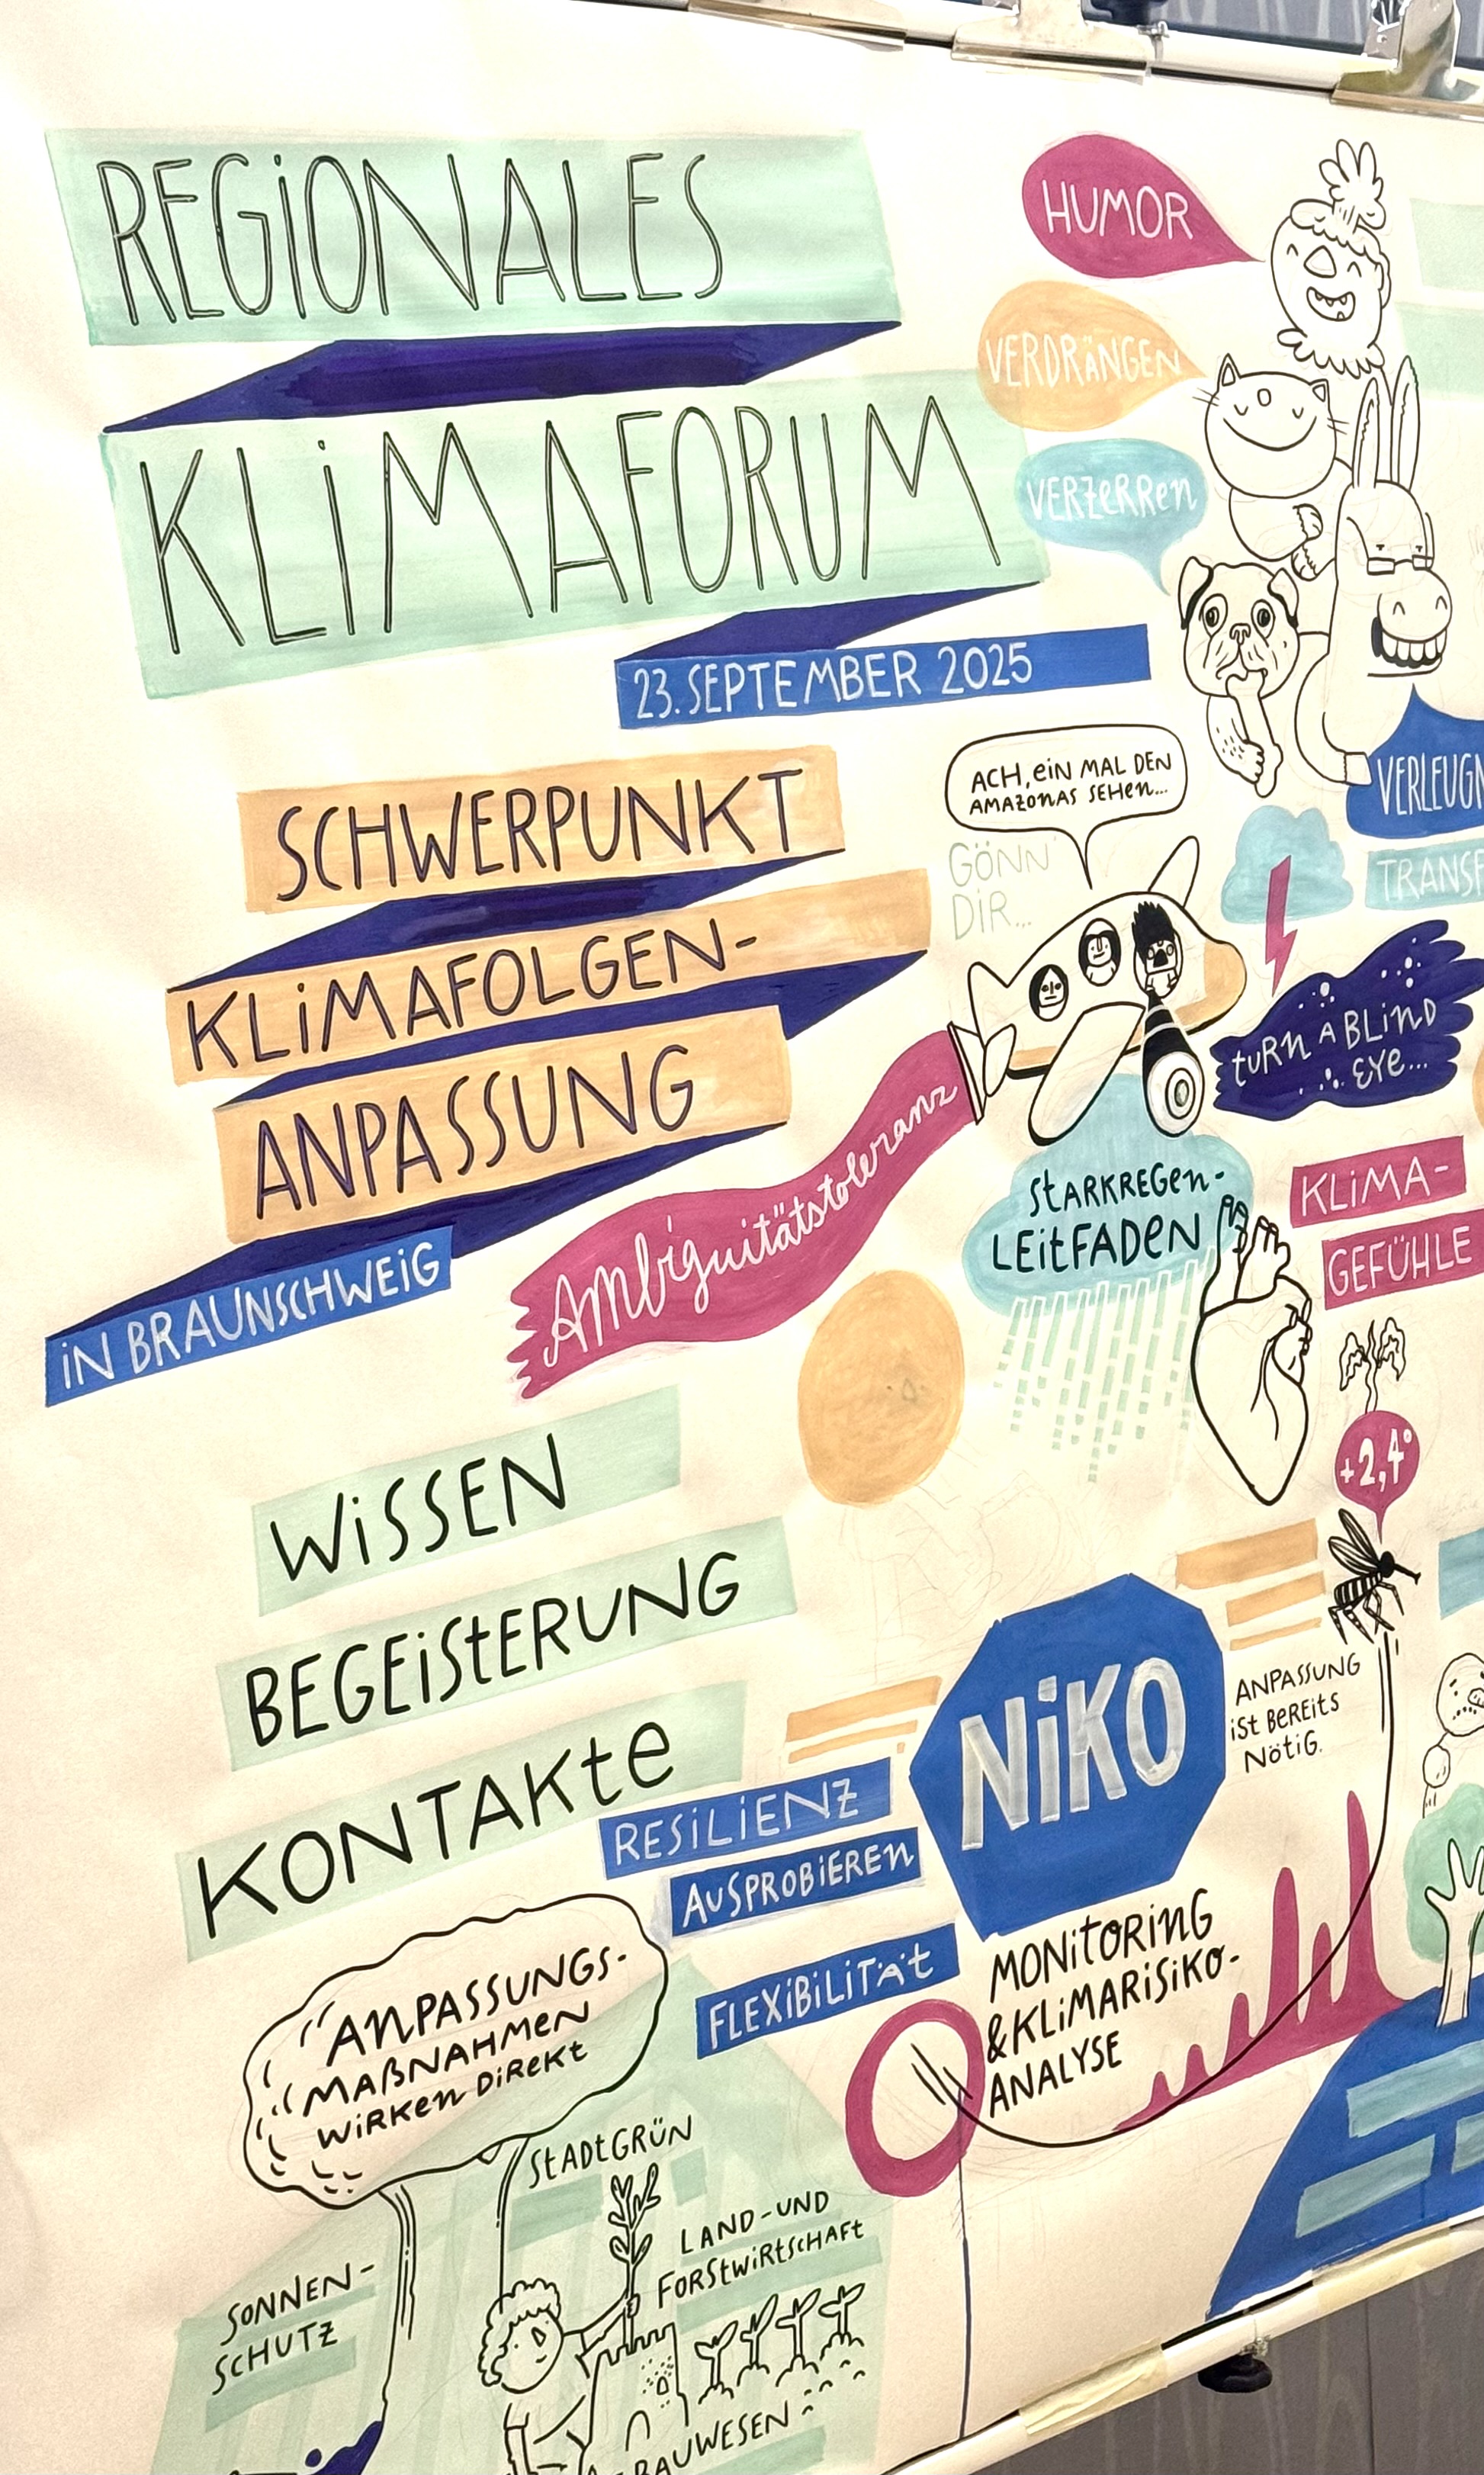 REGIONALES
KLIMAFORUM
23. SEPTEMBER 2025
SCHWERPUNKT
KLIMAFOLGEN-
ANPASSUNG
IN BRAUNSCHWEIG
HUMOR
VERDRÄNGEN
VERZERREN
ACH, EIN MAL DEN
AMAZONAS SEHEN...
GÖNN
DIR...
TURN A BLIND
EYE...
Ambiguitätstoleranz
STARKREGEN-
LEITFADEN
KLIMA-
GEFÜHLE
+2,4°
WISSEN
BEGEISTERUNG
KONTAKTE
NIKO
ANPASSUNG
IST BEREITS
NÖTIG.
RESILIENZ
AUSPROBIEREN
FLEXIBILITÄT
MONITORING
& KLIMARISIKO-
ANALYSE
ANPASSUNGS-
MAßNAHMEN
WIRKEN DIREKT
STADTGRÜN
LAND- UND
FORSTWIRTSCHAFT
SONNEN-
SCHUTZ
BAUWESEN